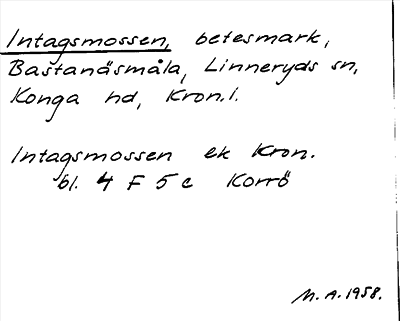 Intagsmossen, betesmark,
Bastanäsmåla, Linneryds sn,
Konga hd, Kron.l.
Intagsmossen ek Kron.
bl. 4 F 5 c Korrö
M.A. 1958.